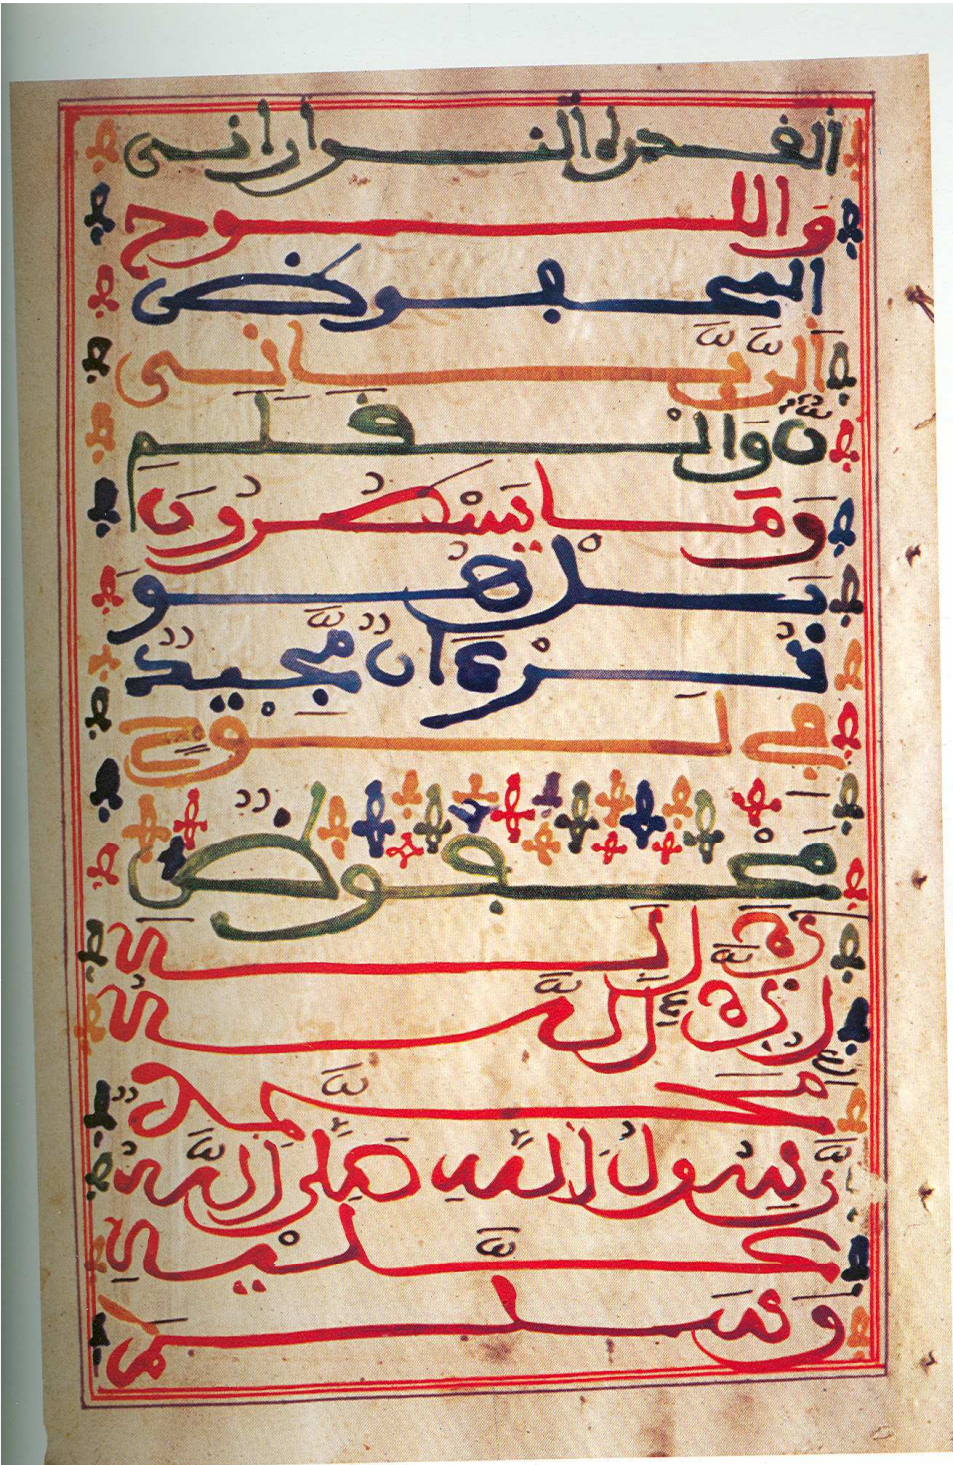 القدرة النورانى
واللوح
المحفوض
الربانى
ن والقلم
وما يسطرون
بل هو
قرءان مجيد
في لوح
محفوض
محمد
رسول الله صلى الله
عليه
وسلم